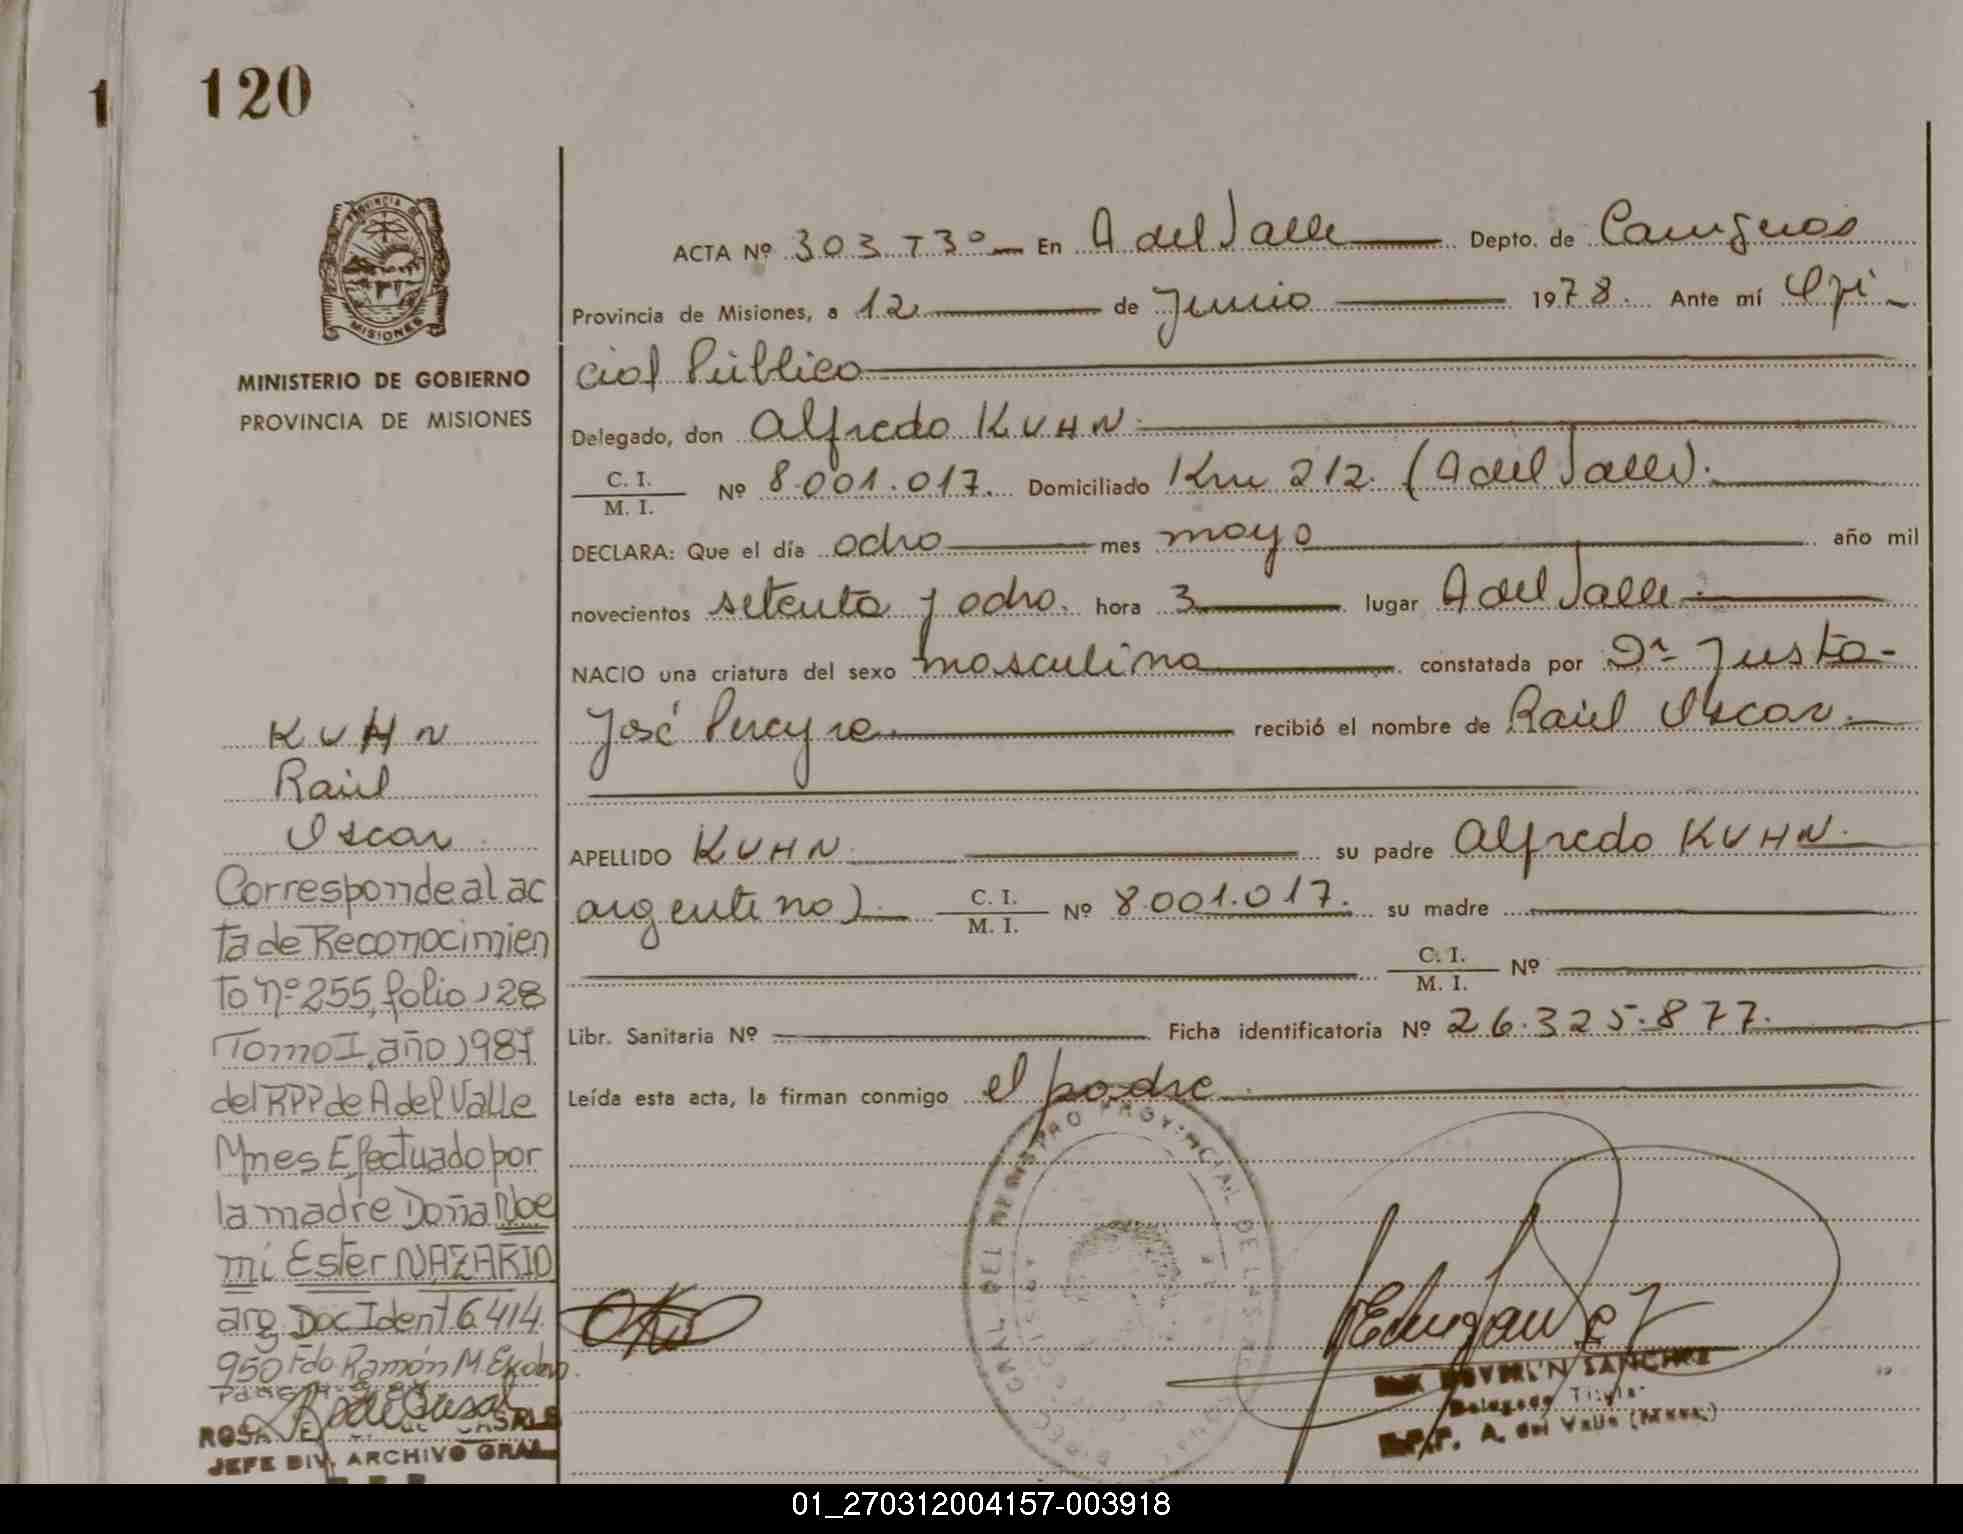 1 120
PROVINCIA DE
MISIONES
MINISTERIO DE GOBIERNO
PROVINCIA DE MISIONES
ACTA Nº 303 T 3º En A del Valle Depto. de Cainguas
Provincia de Misiones, a 12 de Junio 1978. Ante mí Ofi
cial Público
Delegado, don Alfredo KUHN.
C. I.
M. I. Nº 8.001.017. Domiciliado Km 212. (A del Valle).
DECLARA: Que el día ocho mes mayo año mil
novecientos setenta y ocho. hora 3 lugar A del Valle.
NACIO una criatura del sexo masculino constatada por Dr. Justo
José Pereyra. recibió el nombre de Raúl Oscar.
APELLIDO KUHN. su padre Alfredo KUHN.
argentino). C. I. M. I. Nº 8.001.017. su madre
C. I. M. I. Nº
Libr. Sanitaria Nº Ficha identificatoria Nº 26.325.877.
Leída esta acta, la firman conmigo el padre.
KUHN
Raúl
Oscar
Corresponde al ac
ta de Reconocimien
to nº 255, folio 128
Tomo I, año 1987
del RPP de A del Valle
Mnes Efectuado por
la madre Doña Noe
mí Ester NAZARIO
arg Doc Ident 6.414.
950 Fdo. Ramón M.
ROSA
JEFE DIV. ARCHIVO GRAL
DIREC. GRAL. DEL REGISTRO PROVINCIAL DE LAS
SANCHEZ
Delegado Titular
R.P.P. A. del Valle (Mnes.)
01_270312004157-003918